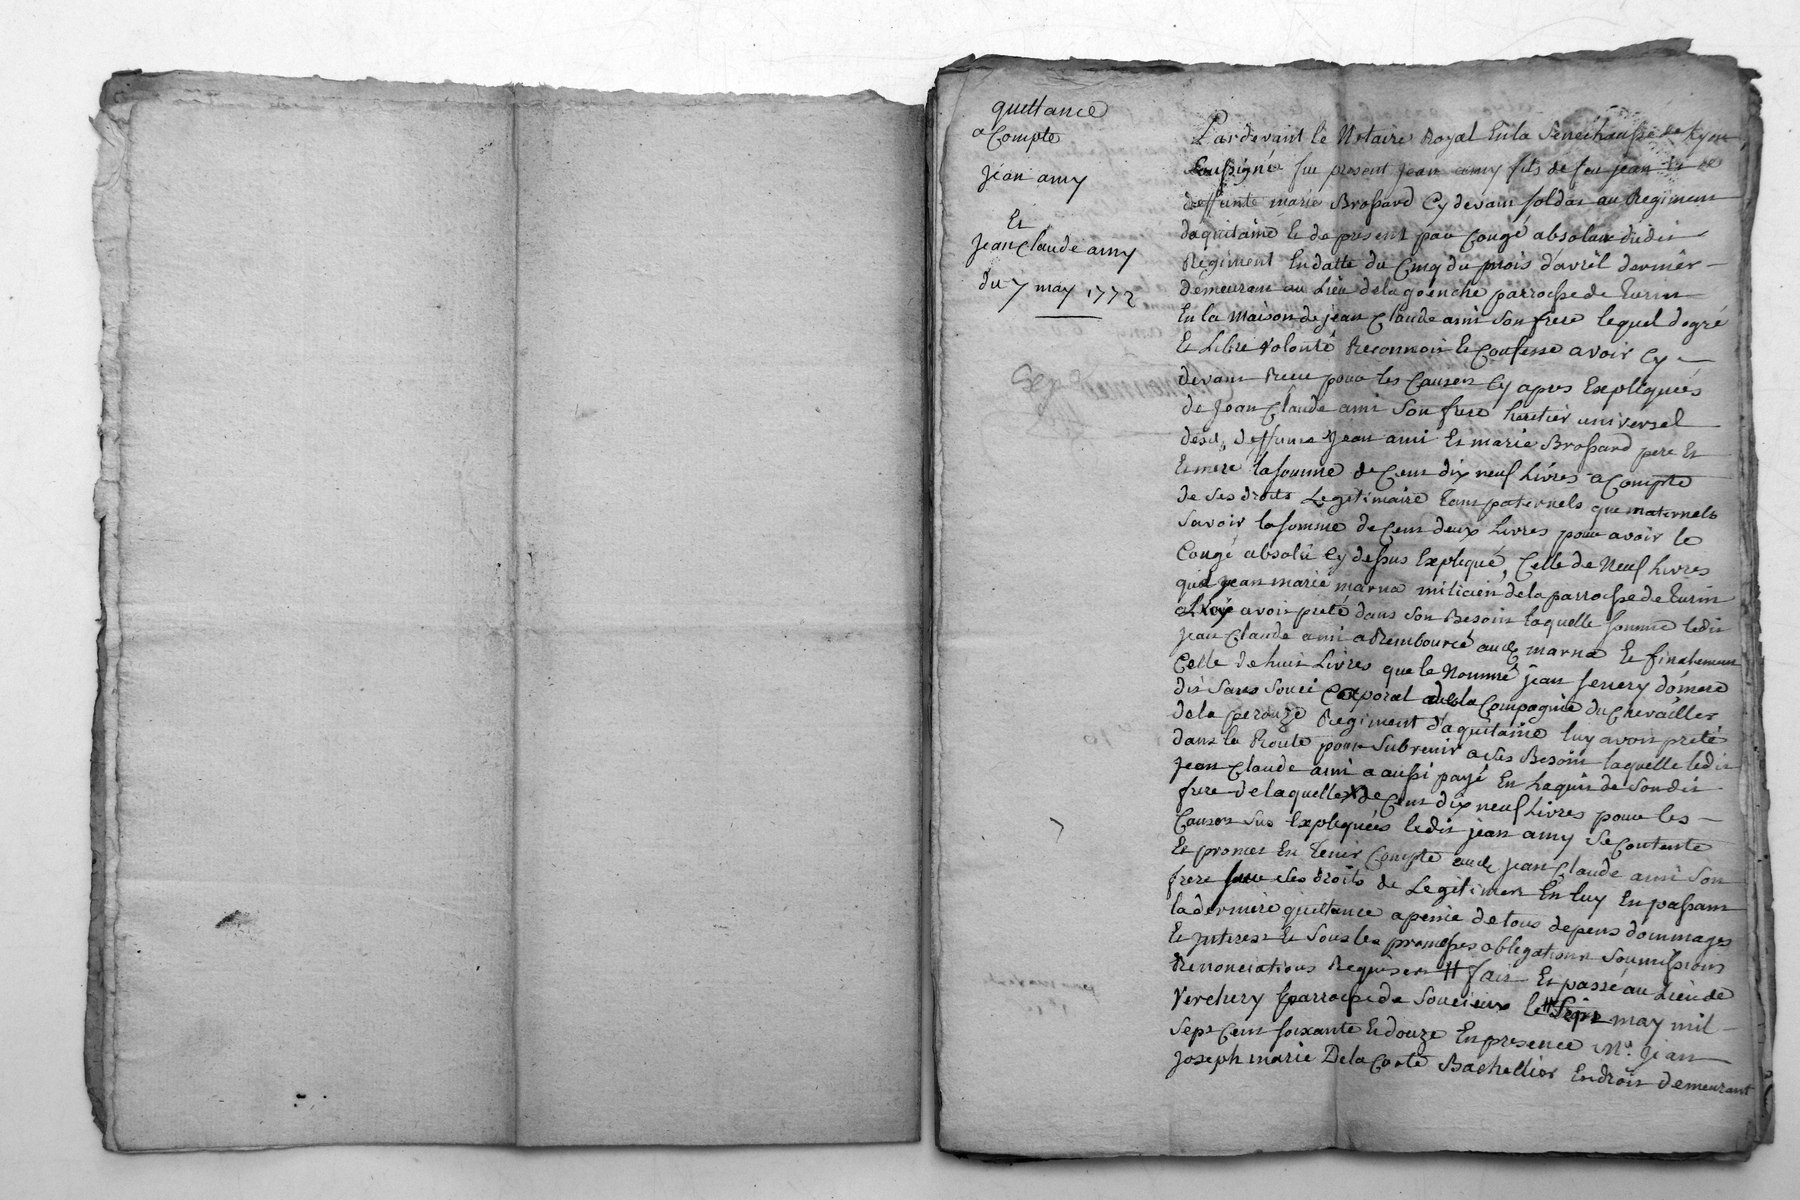 quittance
a Compte
jean amy
Et
jean Claude amy
du 7 may 1772
Pardevant le Notaire Royal En la Senechaussé de Lyon
Soussigné fut present jean amy fils de feu jean et de
deffunte marie Brossard Cy devant soldat au Regiment
daquitaine Et de present par Congé absolut dudit
Regiment En datte du Cinq du mois d'avril dernier
demeurant au Lieu de la goenche parroisse de Turin
En la Maison de jean Claude ami son frere lequel de gré
Et Libre volonté Reconnoit Et Confesse avoir Cy
devant Reçu pour les Causes Cy apres Expliquées
de Jean Claude ami son frere heretier universel
desd. deffunts Jean ami Et marie Brossard pere Et
Et mere la somme de Cent dix neuf Livres a Compte
de ses droits Legitimaire tant paternels que maternels
Savoir la somme de Cent deux Livres pour avoir le
Congé absolu Cy dessus Expliqué, Celle de Neuf Livres
que jean marie marna milicien de la parroisse de Turin
avoir preté dans son Besoin laquelle somme ledit
jean Claude ami a Rembourcé aud. marna Et finalement
Celle de huit Livres que le Nommé jean
dit Sans Souci Corporal de la Compagnie du Chevallier
de la perouze Regiment d'aquitaine luy avoit preté
dans la Route pour Subvenir a ses Besoin laquelle ledit
Jean Claude ami a aussi payé En l'aquit de son dit
frere de laquelle de Cent dix neuf Livres pour les
Causes sus Expliquées ledit jean amy se Contente
Et promet En Tenir Compte aud. jean Claude ami son
frere sur ses droits de Legitimes En luy En passant
la derniere quittance a peine de tous depens dommages
Et jnterest Et sous les promesses obligations soumissions
Renonciations Requises # fait Et passé au Lieu de
Verchery parroisse de Soucieux le # Sept may mil
Sept Cent soixante Et douze En presence Me. Jean
Joseph marie Delacoste Bachellier En droit demeurant